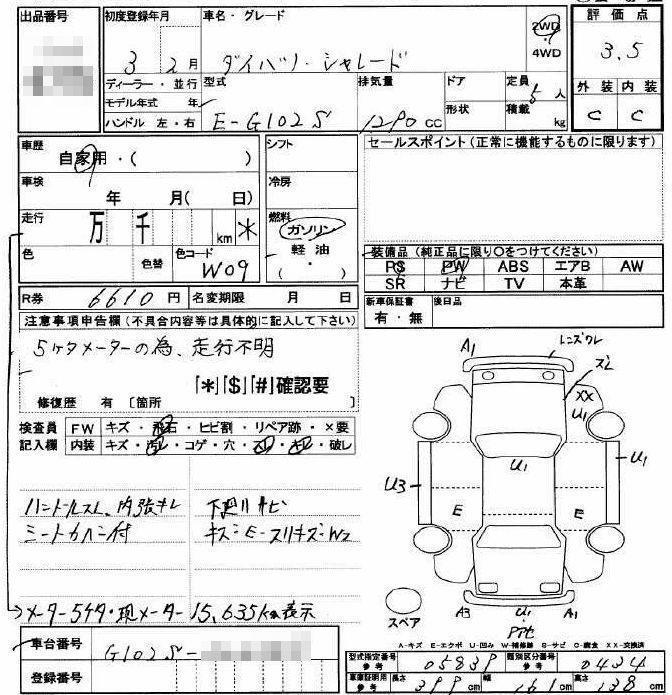 出品番号
初度登録年月 3 2月
車名・グレード ダイハツ・シャレード
2WD
4WD
評価点
3.5
外装 内装
C C
ディーラー・並行
モデル年式 年
ハンドル 左・右
型式 E-G102S
排気量 1290 CC
ドア
形状
定員 5人
積載 kg
車歴
自家用・( )
車検
年 月( 日)
走行
万 千 km *
色 色替 色コード W09
シフト
冷房
燃料
ガソリン
軽油
( ・ )
セールスポイント(正常に機能するものに限ります)
装備品(純正品に限り○をつけてください)
PS PW ABS エアB AW
SR ナビ TV 本革
新車保証書 有・無
後日品
R券 6610円 名変期限 月 日
注意事項申告欄(不具合内容等は具体的に記入して下さい)
5ケタメーターの為、走行不明
「*」「$」「#」確認要
修復歴 有 〔箇所 〕
検査員記入欄
FW キズ・飛石・ヒビ割・リペア跡・×要
内装 キズ・汚レ・コゲ・穴・スレ・キレ・破レ
ハンドルスレ、内張キレ
シートカバー付
下廻りサビ
キズ・E・スリキズ・W2
メーター5ケタ・現メーター15,635km表示
A1
レンズワレ
ズレ
XX
U1
U3
U1
U1
E
E
スペア
A3
U1
A1
A-キズ E-エクボ U-凹み W-補修跡 S-サビ C-腐食 XX-交換済
車台番号 G102S-
登録番号
型式指定番号 参考 05839
類別区分番号 参考 0434
車庫証明用 参考 長さ 399cm 幅 161cm 高さ 138cm